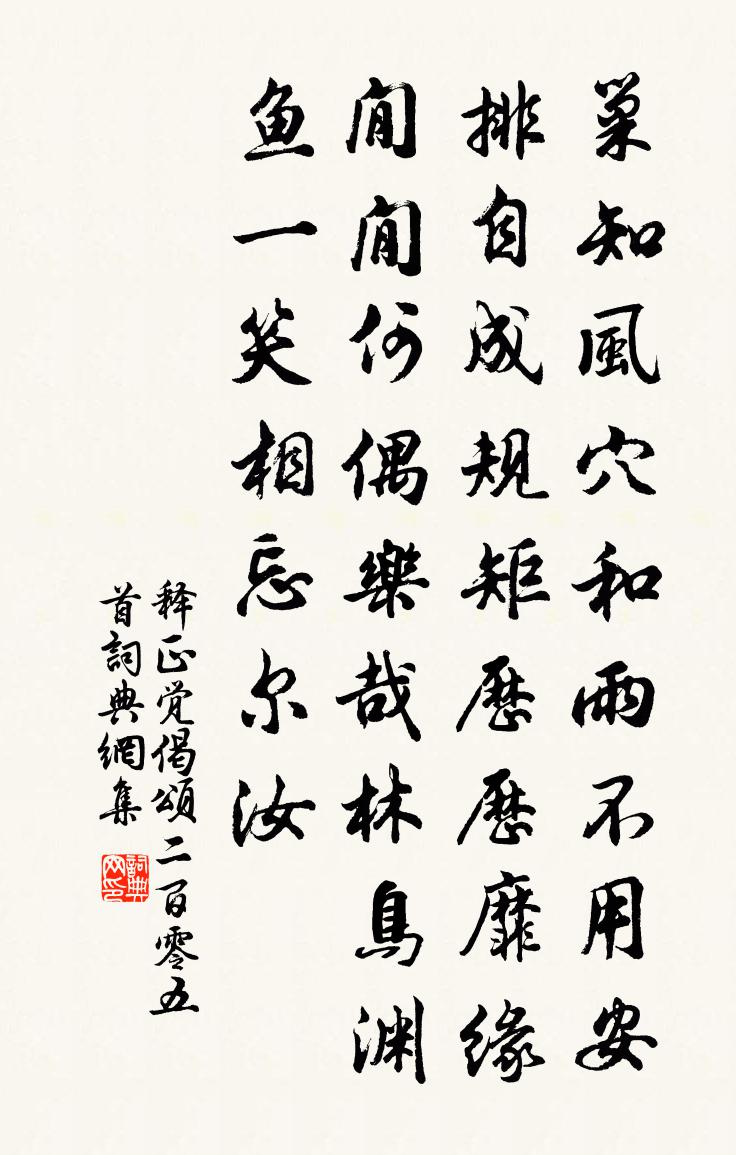 巢知風穴和雨不用安
排自成規矩歷歷靡緣
閒閒何偶樂哉林鳥渊
鱼一笑相忘尔汝
释正觉偈頌二百零五
首詞典網集
詞典网印